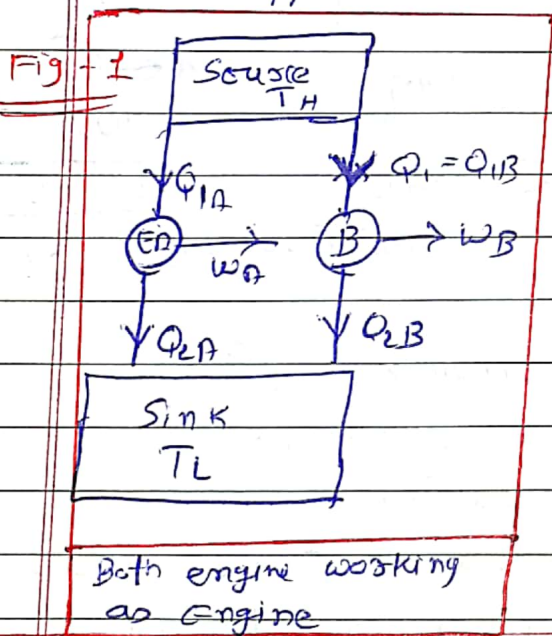 Fig-1
Source
TH
Q1A
Q1 = Q1B
EA
WA
B
WB
Q2A
Q2B
Sink
TL
Both engine working
as Engine